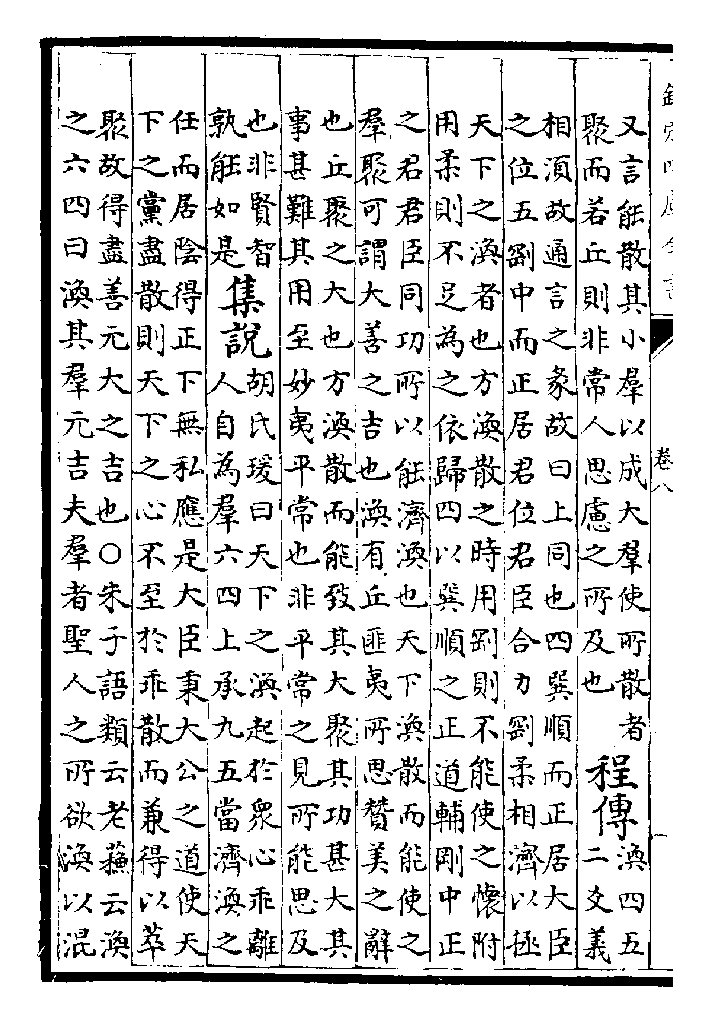 卷八
又言能散其小羣以成大羣使所散者
聚而若丘則非常人思慮之所及也
程傳
渙四五
二爻義
相須故通言之彖故曰上同也四巽順而正居大臣
之位五剛中而正居君位君臣合力剛柔相濟以拯
天下之渙者也方渙散之時用剛則不能使之懷附
用柔則不足為之依歸四以巽順之正道輔剛中正
之君君臣同功所以能濟渙也天下渙散而能使之
羣聚可謂大善之吉也渙有丘匪夷所思贊美之辭
也丘聚之大也方渙散而能致其大聚其功甚大其
事甚難其用至妙夷平常也非平常之見所能思及
也非賢智
孰能如是
集說
胡氏瑗曰天下之渙起於衆心乖離
人自為羣六四上承九五當濟渙之
任而居陰得正下無私應是大臣秉大公之道使天
下之黨盡散則天下之心不至於乖散而兼得以萃
聚故得盡善元大之吉也○朱子語類云老蘇云渙
之六四曰渙其羣元吉夫羣者聖人之所欲渙以混